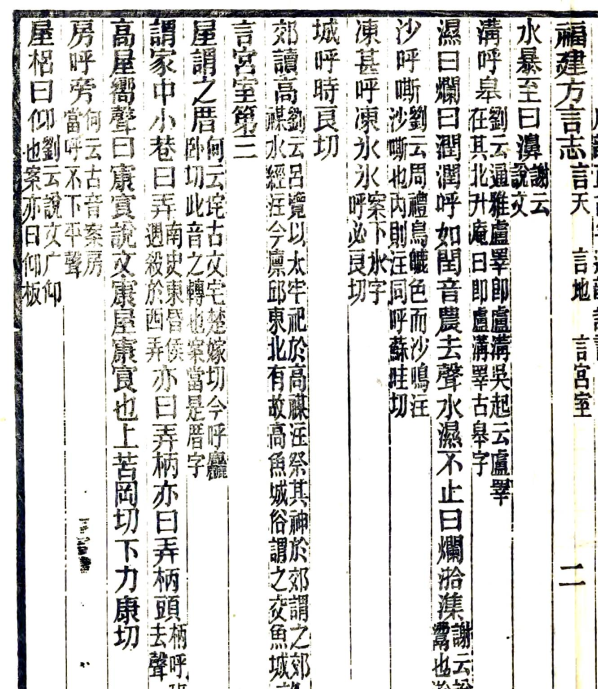 福建方言志 言天 言地 言宮室 二
水暴至曰濞 謝云說文
溝呼皋 劉云通雅盧睪即盧溝吳起云盧睪在其北升庵曰即盧溝睪古皋字
濕曰爛曰潤潤呼如閏音農去聲水濕不止曰爛㳫潗
沙呼嘶 劉云周禮鳥皫色而沙鳴注沙嘶也內則注同呼蘇哇切
凍甚呼凍冰冰 案下冰字呼必良切
城呼時良切
郊讀高 劉云呂覽以太牢祀於高禖注祭其神於郊謂之郊禖水經注今廩邱東北有故高魚城俗謂之交魚城
言宮室第三
屋謂之厝 何云㡯古文宅楚嫁切今呼麤臥切此音之轉也案當是厝字
謂家中小巷曰弄 南史東昏侯遇殺於西弄 亦曰弄柄亦曰弄柄頭
高屋嚮聲曰㝩㝗說文㝩屋㝩㝗也上苦岡切下力康切
房呼旁 何云古音案房當呼不下平聲
屋梠曰仰 劉云說文广仰也案亦曰仰板